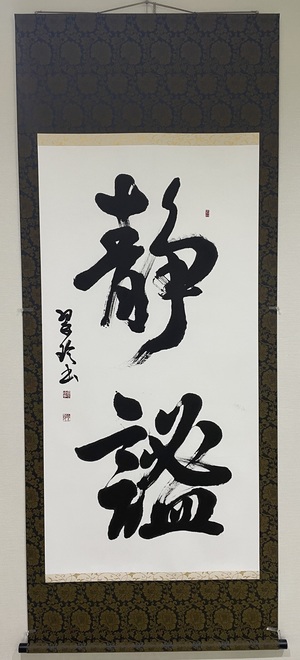 静謐
翠玲書